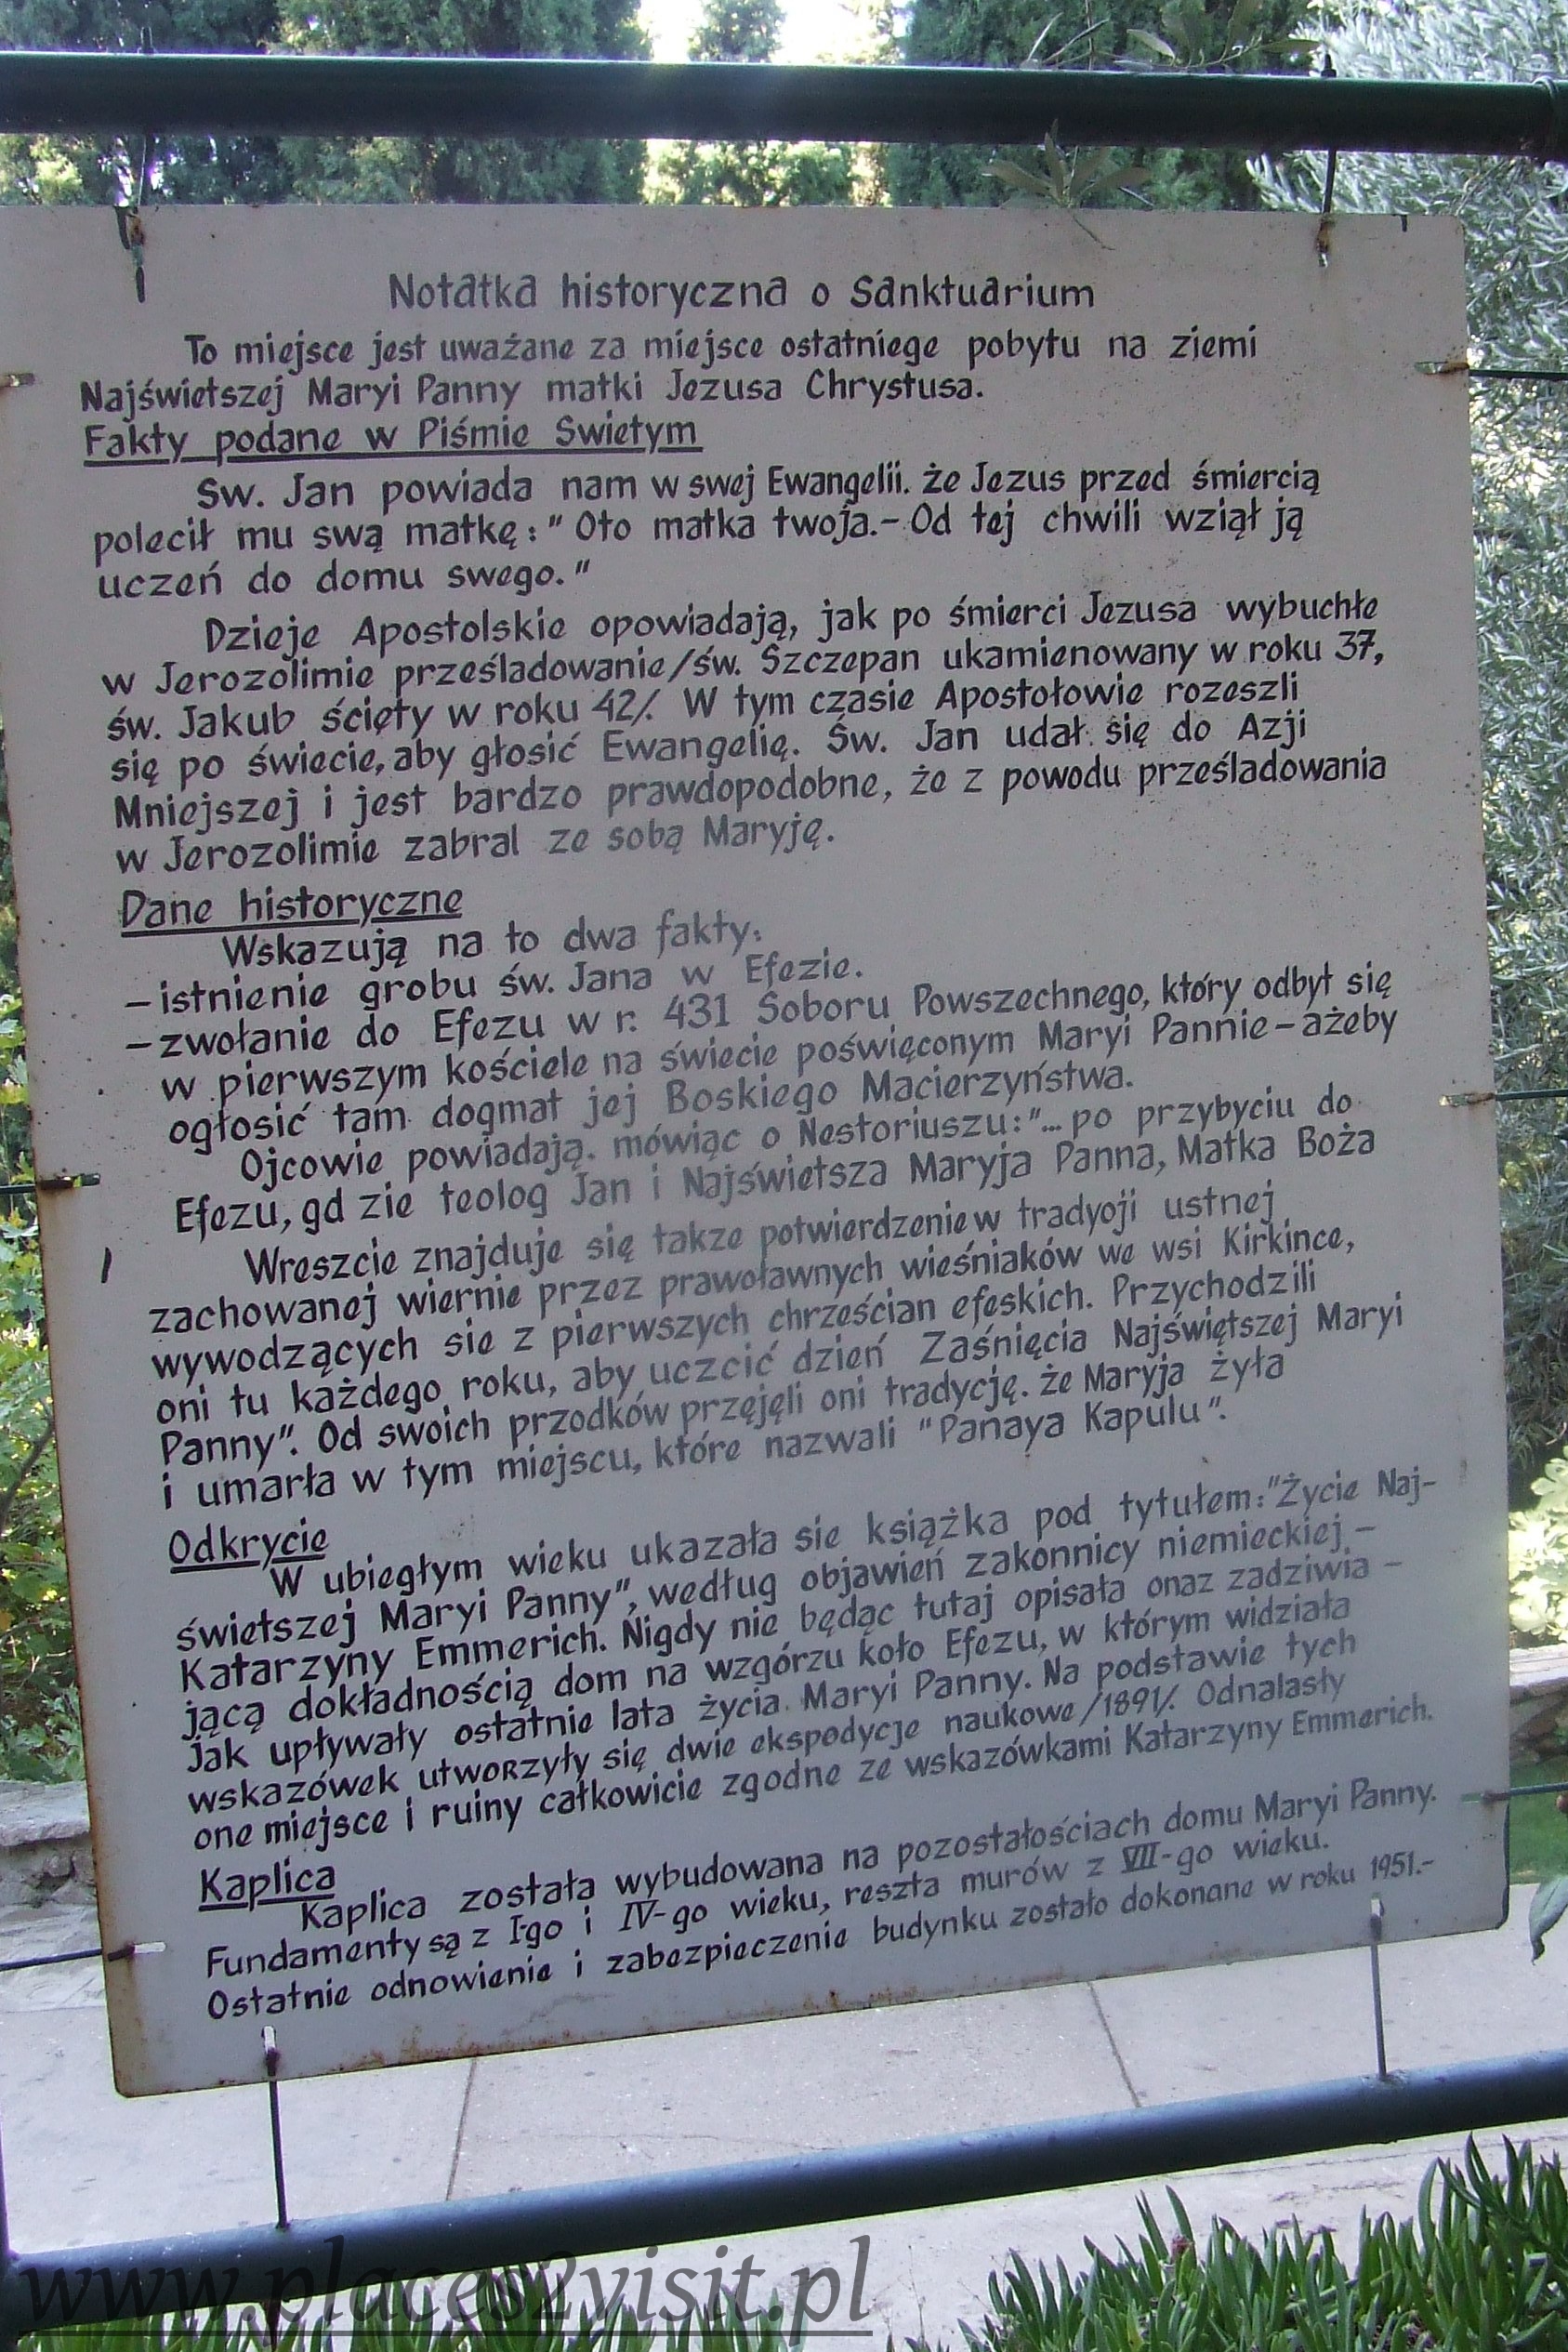 Notatka historyczna o Sanktuarium
To miejsce jest uważane za miejsce ostatniege pobytu na ziemi
Najświetszej Maryi Panny matki Jezusa Chrystusa.
Fakty podane w Piśmie Swietym
Sw. Jan powiada nam w swej Ewangelii. że Jezus przed śmiercią
polecił mu swą matkę: " Oto matka twoja.- Od tej chwili wziął ją
uczeń do domu swego. "
Dzieje Apostolskie opowiadają, jak po śmierci Jezusa wybuchłe
w Jerozolimie prześladowanie/św. Szczepan ukamienowany w roku 37,
św. Jakub ścięty w roku 42/. W tym czasie Apostołowie rozeszli
się po świecie, aby głosić Ewangelię. Św. Jan udał się do Azji
Mniejszej i jest bardzo prawdopodobne, że z powodu prześladowania
w Jerozolimie zabral ze sobą Maryję.
Dane historyczne
Wskazują na to dwa fakty:
- istnienie grobu św. Jana w Efezie.
- zwołanie do Efezu w r. 431 Soboru Powszechnego, który odbył się
w pierwszym kościele na świecie poświęconym Maryi Pannie - ażeby
ogłosić tam dogmat jej Boskiego Macierzyństwa.
Ojcowie powiadają. mówiąc o Nestoriuszu: "... po przybyciu do
Efezu, gd zie teolog Jan i Najświetsza Maryja Panna, Matka Boża
Wreszcie znajduje się takze potwierdzenie w tradyoji ustnej
zachowanej wiernie przez prawoławnych wieśniaków we wsi Kirkince,
wywodzących sie z pierwszych chrześcian efeskich. Przychodzili
oni tu każdego roku, aby uczcić dzień Zaśnięcia Najświętszej Maryi
Panny". Od swoich przodków przęjęli oni tradycję. że Maryja żyła
i umarła w tym miejscu, które nazwali "Panaya Kapulu".
Odkrycie
W ubiegłym wieku ukazała sie książka pod tytułem: "Życie Naj-
świetszej Maryi Panny", według objawień zakonnicy niemieckiej -
Katarzyny Emmerich. Nigdy nie będąc tutaj opisała onaz zadziwia -
jącą dokładnością dom na wzgórzu koło Efezu, w którym widziała
jak upływały ostatnie lata życia Maryi Panny. Na podstawie tych
wskazówek utworzyły się dwie ekspedycje naukowe /1891/. Odnalasły
one miejsce i ruiny całkowicie zgodne ze wskazówkami Katarzyny Emmerich.
Kaplica
Kaplica została wybudowana na pozostałościach domu Maryi Panny.
Fundamenty są z I-go i IV-go wieku, reszta murów z VII-go wieku.
Ostatnie odnowienie i zabezpieczenie budynku zostało dokonane w roku 1951.-
www.places2visit.pl